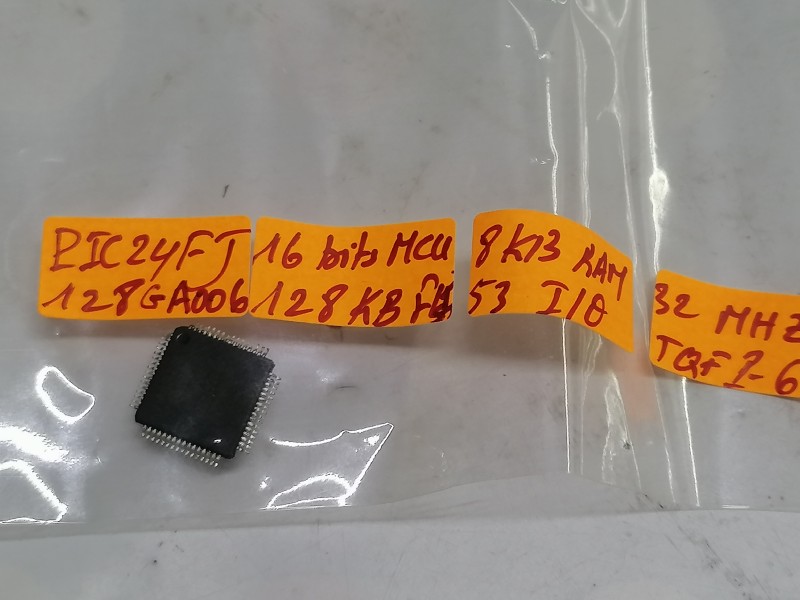 PIC24FJ
128GA006
16 bits MCU
128 KB
8 KB RAM
53 I/O
32 MHz
TQFP-6